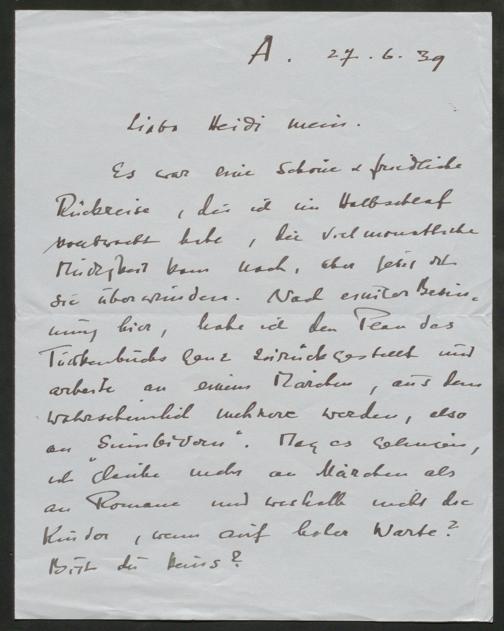 A. 27.6.39
Liebe Heidi mein.
Es war eine schöne & friedliche
Rückreise, die ich im Halbschlaf
verbracht habe, die vielmonatliche
Müdigkeit kam nach, aber jetzt ist
sie überwunden. Nach ernster Besin-
nung hier, habe ich den Plan des
Türkenbuchs ganz zurückgestellt und
arbeite an einem Märchen, aus dem
wahrscheinlich mehrere werden, also
an "". Mag es gelingen,
ich glaube mehr an Märchen als
an Romane und weshalb nicht die
Kinder, wenn auf hoher Warte?
Bist du